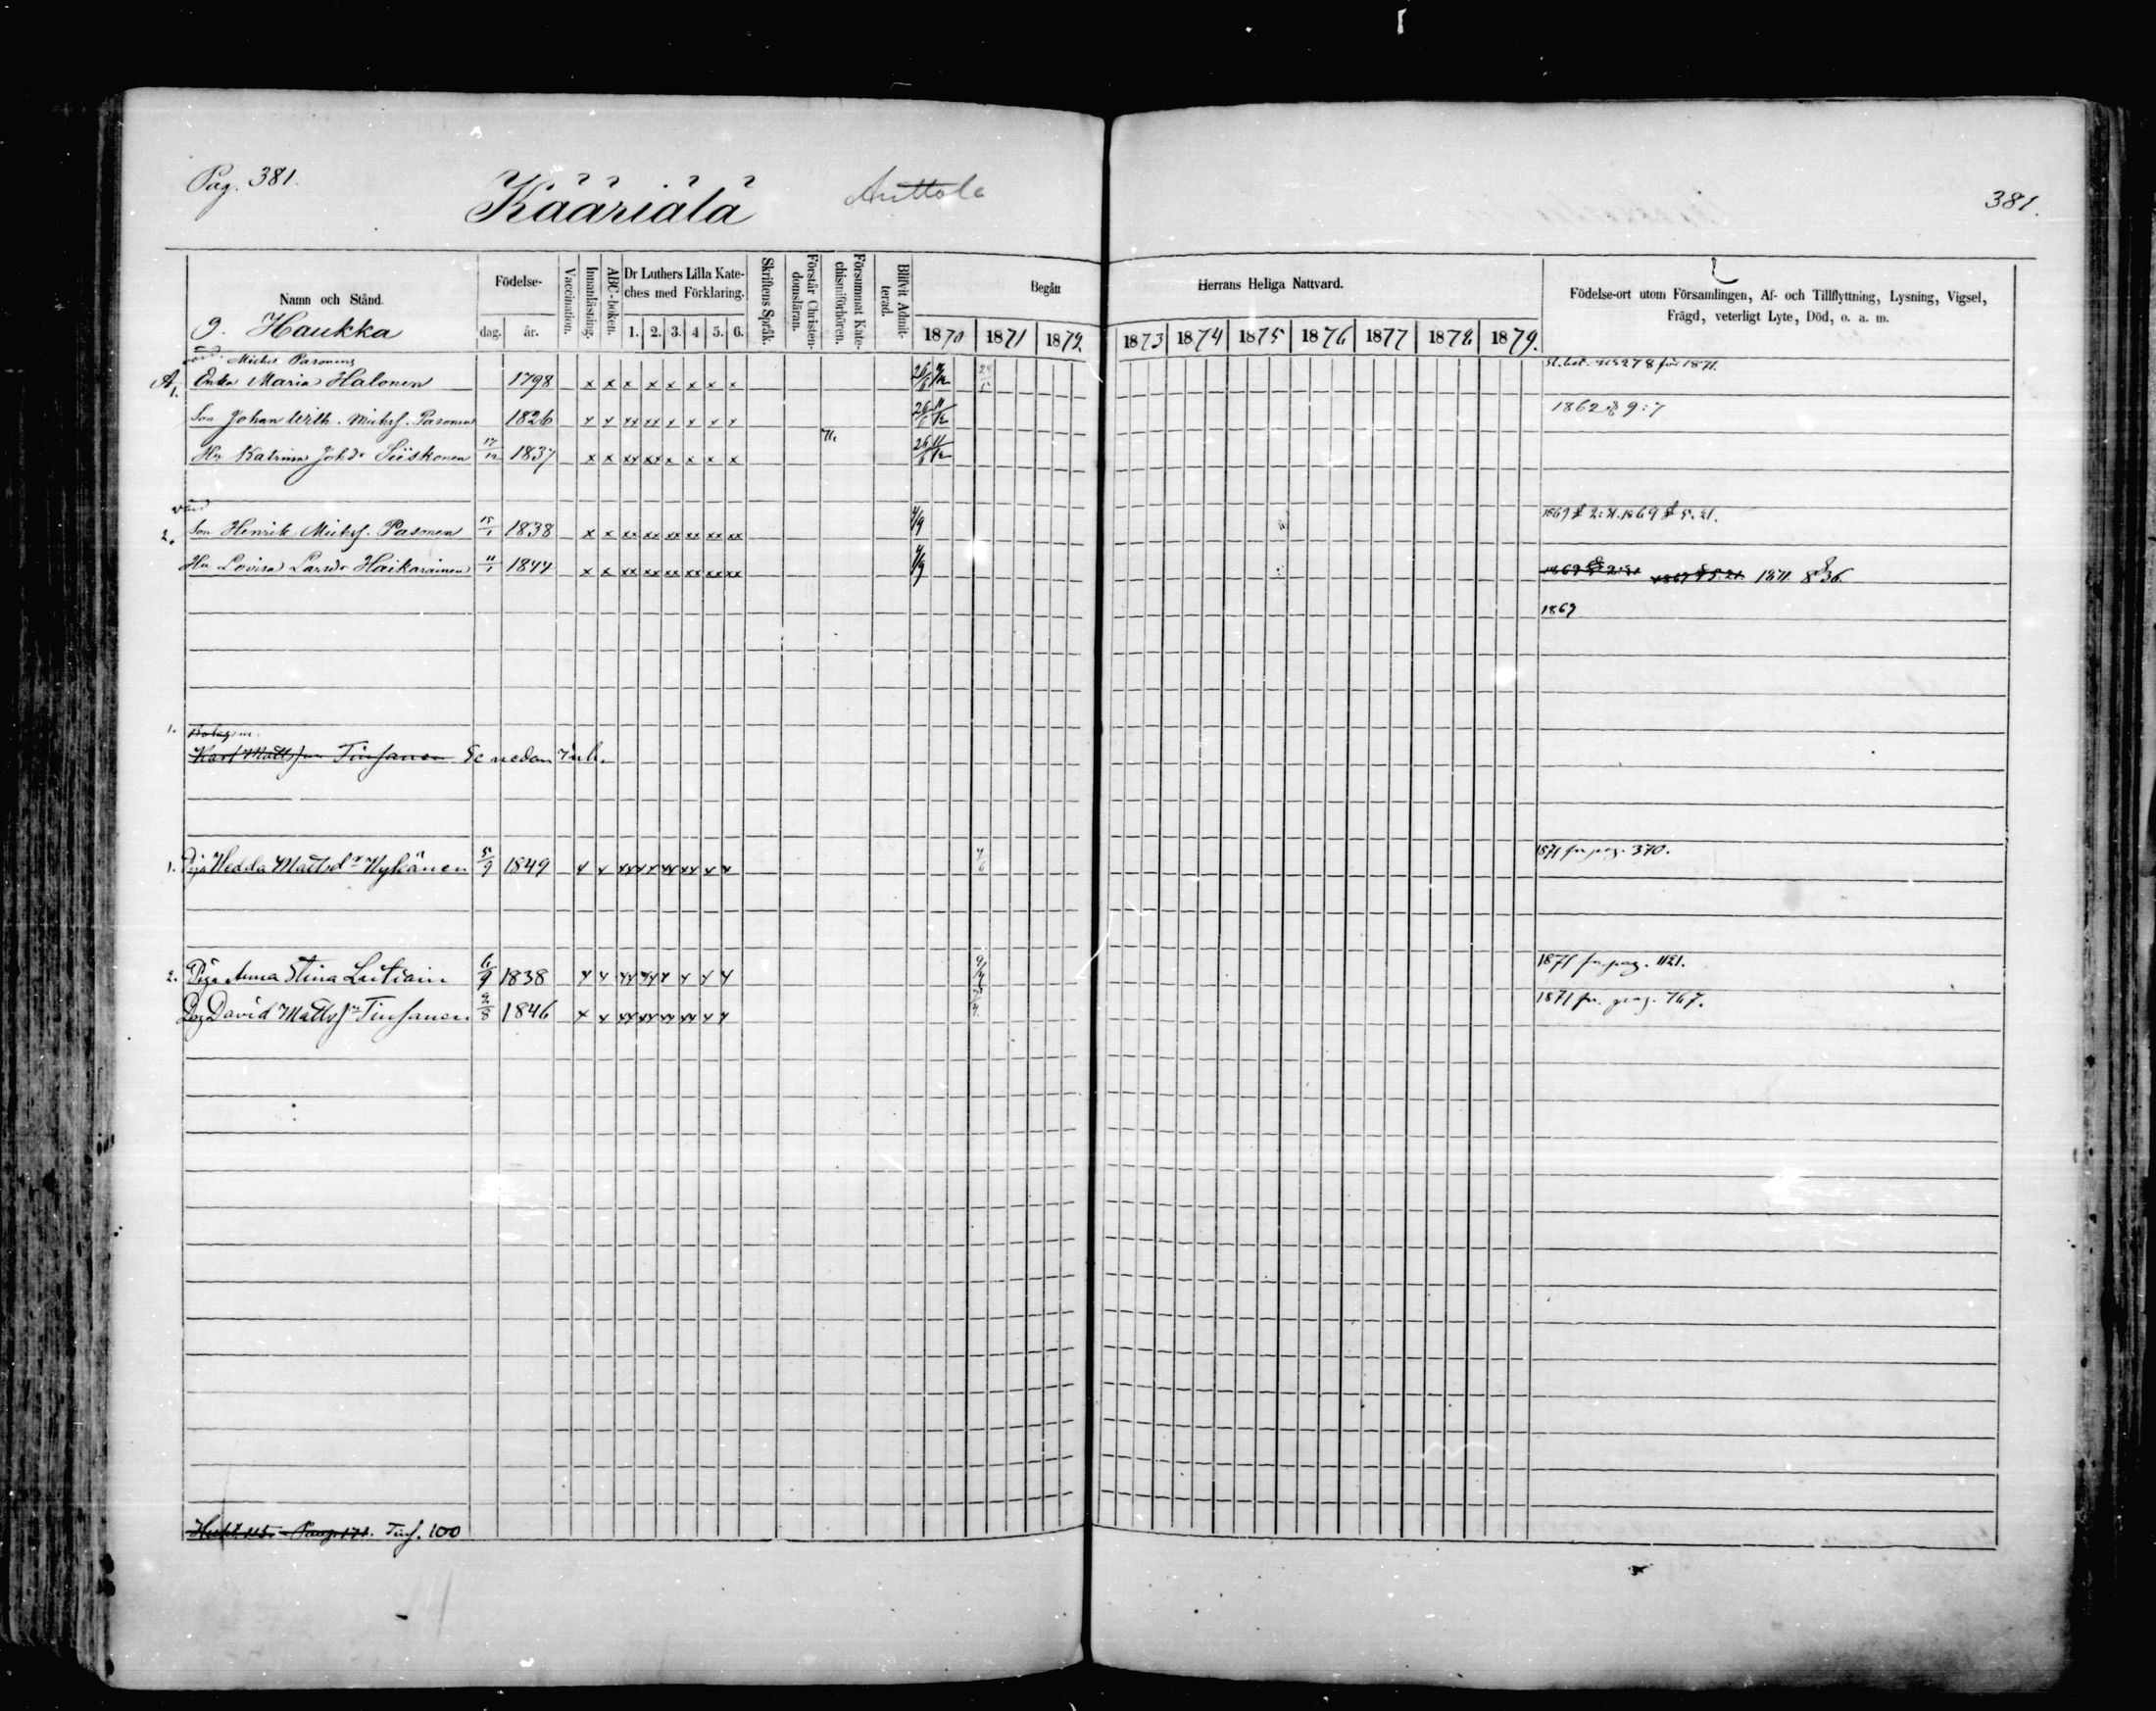 Pag. 381.
Kääriälä
Anttola
381.
Namn och Stånd.
Födelse-
dag.
år.
Vaccination.
Innanläsning.
ABC-boken.
Dr Luthers Lilla Kate-
ches med Förklaring.
1. 2. 3. 4 5. 6.
Skriftens Språk.
Förstår Christen-
domsläran.
Försummat Kate-
chismiförhören.
Blifvit Admit-
terad.
Begått
Herrans Heliga Nattvard.
1870 1871 1872 1873 1874 1875 1876 1877 1878 1879.
Födelse-ort utom Församlingen, Af- och Tillflyttning, Lysning, Vigsel,
Frägd, veterligt Lyte, Död, o. a. m.
9. Haukka
Michel Pasonens
A, 1. Enka Maria Halonen 1798 x x x x x x x x 26/6 29/5 278 för 1871.
Son Johan Wilh. Michsf. Pasonen 1826 26/6 1862 9:7
Hu Katrina Joh.dr Siiskonen 17/12 1837 x x xx xx x x x x 26/6
2. Son Henrik Michsf. Pasonen 15/1 1838 x x xx xx xx xx xx xx 4/9 1869 § 2:31. 1869 § 5. 21.
Hu Lovisa Larsdr Haikarainen 11/1 1844 x x xx xx xx xx xx xx 4/9 1871. 8 § 36.
1869
1.
Karl Mattsson Tinsanen Se nedan
1. Piga Hedda Mattsdr Nykänen 5/9 1849 1871 fr. pag. 370.
2. Piga Anna Stina Lutiain 6/9 1838 1871 fr. pag. 1121.
Drg David Mattsson Tinsanen 2/8 1846 1871 fr. pag. 767.
100